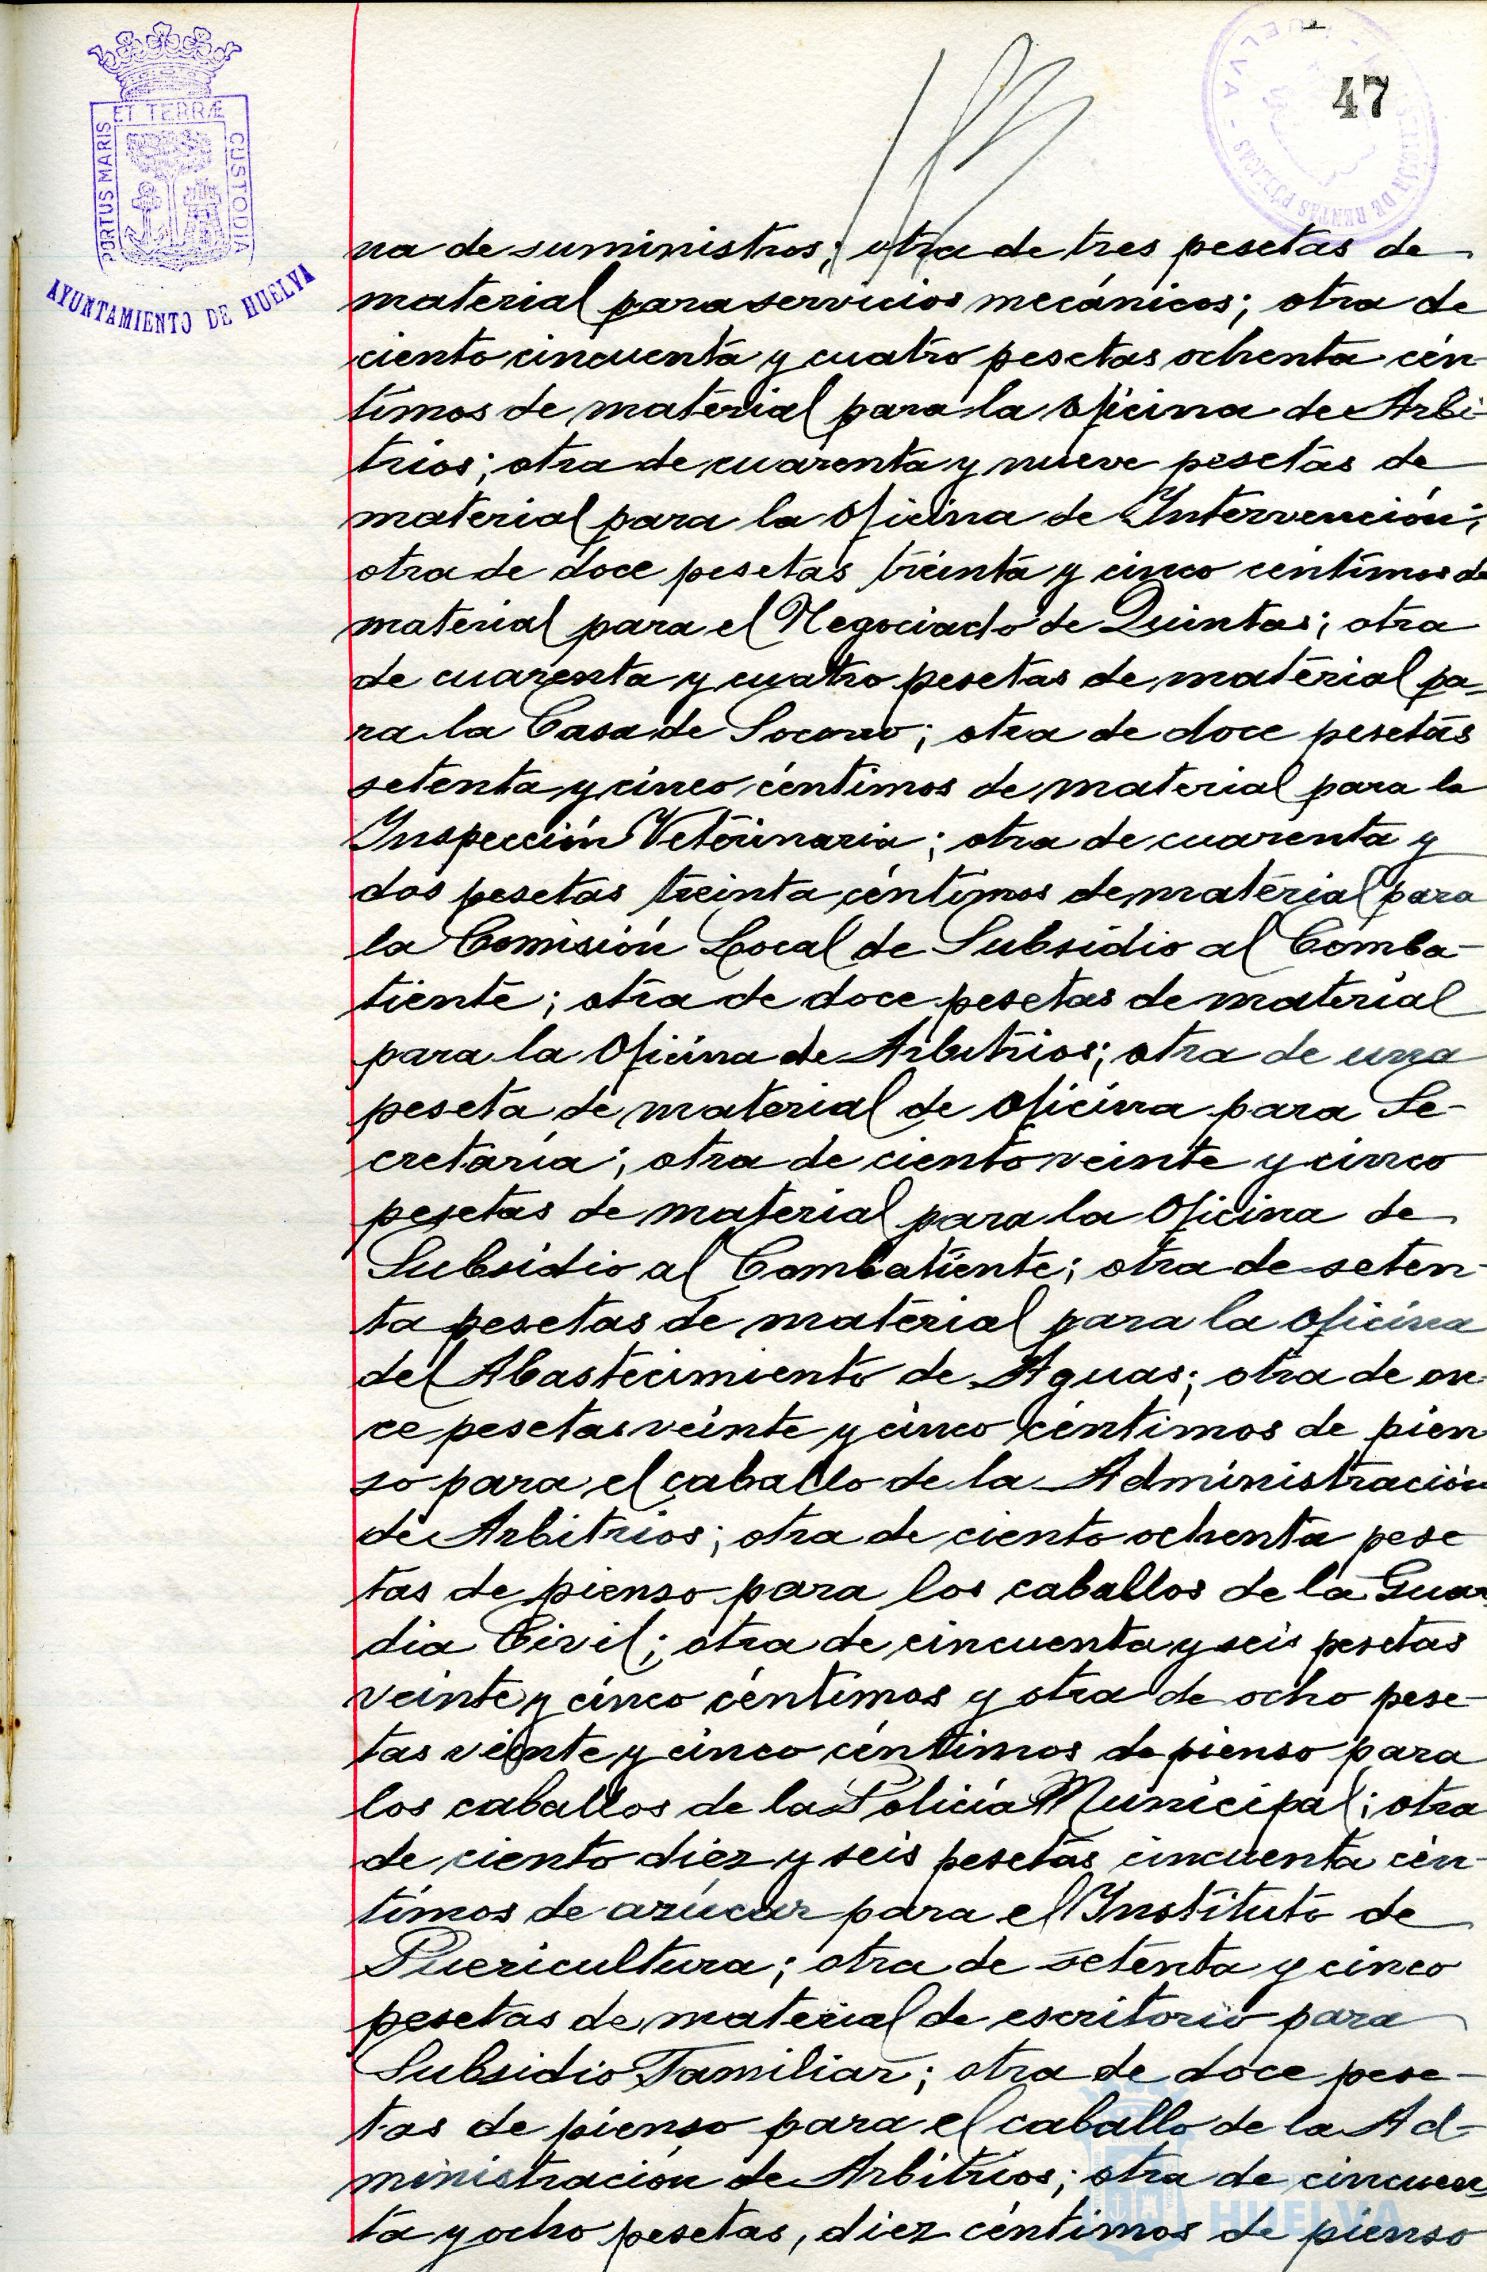 47
ET TERRÆ
PORTUS MARIS
CUSTODIA
AYUNTAMIENTO DE HUELVA
na de suministros; otra de tres pesetas de
material para servicios mecánicos; otra de
ciento cincuenta y cuatro pesetas ochenta cén-
timos de material para la oficina de Arbi-
trios; otra de cuarenta y nueve pesetas de
material para la Oficina de Intervención;
otra de doce pesetas treinta y cinco centimos de
material para el Negociado de Quintas; otra
de cuarenta y cuatro pesetas de material pa-
ra la Casa de Socorro; otra de doce pesetas
setenta y cinco céntimos de material para la
Inspección Veterinaria; otra de cuarenta y
dos pesetas treinta céntimos de material para
la Comisión Local de Subsidio al Comba-
tiente; otra de doce pesetas de material
para la Oficina de Arbitrios; otra de una
peseta de material de oficina para Se-
cretaría; otra de ciento veinte y cinco
pesetas de material para la Oficina de
Subsidio al Combatiente; otra de seten-
ta pesetas de material para la Oficina
del Abastecimiento de Aguas; otra de on-
ce pesetas veinte y cinco céntimos de pien
so para el caballo de la Administración
de Arbitrios; otra de ciento ochenta pese
tas de pienso para los caballos de la Guar
dia Civil; otra de cincuenta y seis pesetas
veinte y cinco céntimos y otra de ocho pese-
tas veinte y cinco céntimos de pienso para
los caballos de la Policía Municipal; otra
de ciento diez y seis pesetas cincuenta cén-
timos de azúcar para el Instituto de
Puericultura; otra de setenta y cinco
pesetas de material de escritorio para
Subsidio Familiar; otra de doce pese-
tas de pienso para el caballo de la Ad-
ministración de Arbitrios; otra de cincuen
ta y ocho pesetas, diez céntimos de pienso
HUELVA